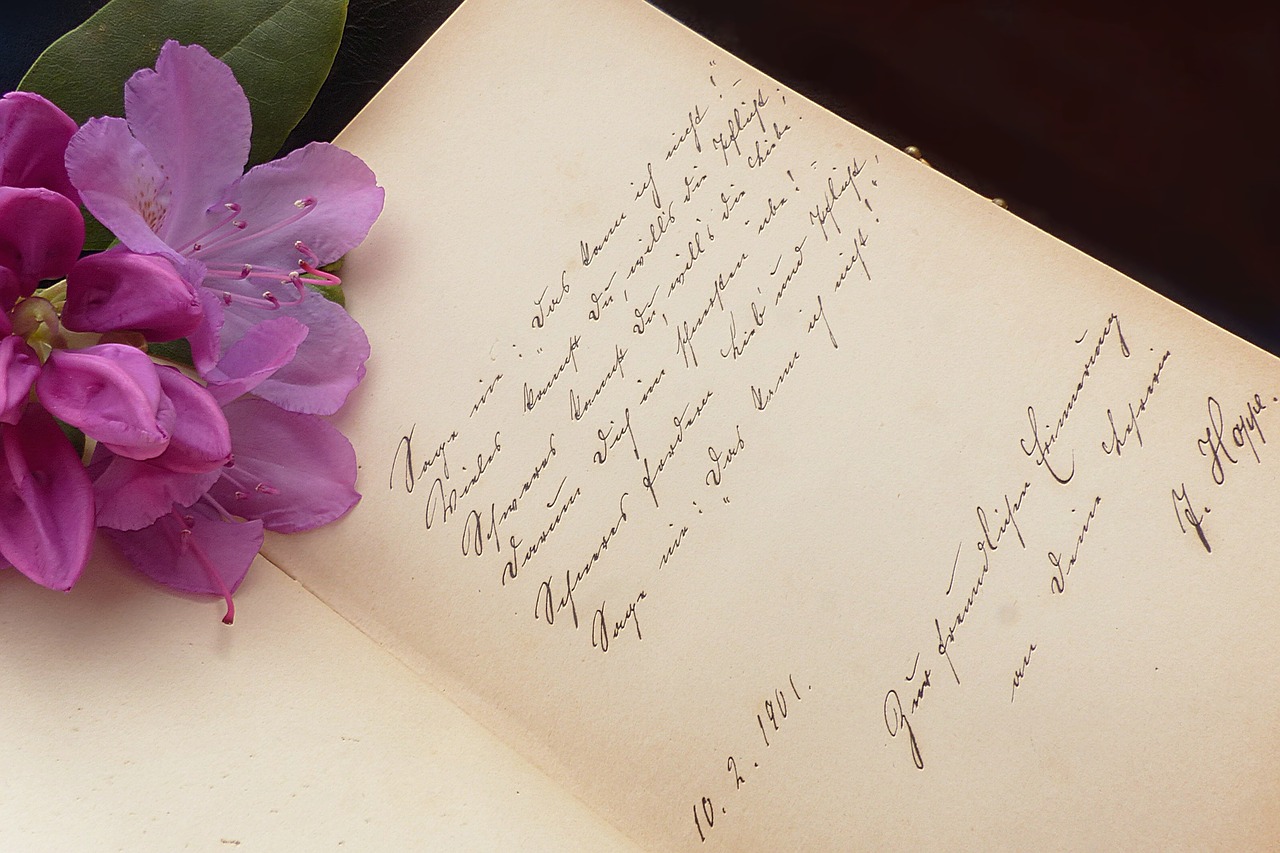 Sage nie: "Das kann ich nicht!"
Vieles kannst Du, will's die Pflicht;
Schweres kannst Du, will's die Liebe.
Darum Dich im Schwersten übe!
Schweres fordern Lieb' und Pflicht;
Sage nie: "Das kann ich nicht!"
Zur freundlichen Erinnerung
an Deine Lehrerin
J. Hoppe.
10. 2. 1901.